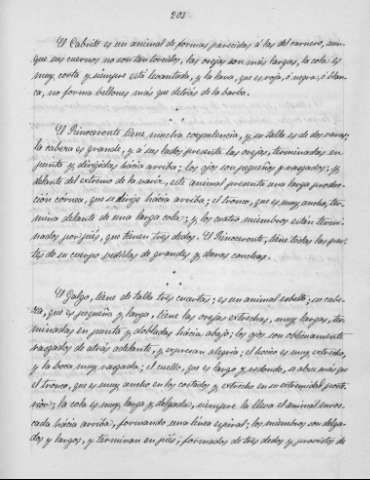 203
El Cabrito es un animal de formas parecidas á las del carnero, aun-
que sus cuernos no son tan torcidos, las orejas son más largas, la cola es
muy corta y siempre está levantada, y la lana, que es roja, ó negra, ó blan-
ca, no forma bellones más que detrás de la barba.
El Rinoceronte tiene mucha corpulencia, y su talla es de dos varas;
la cabeza es grande, y á sus lados presenta las orejas, terminadas en
punta y dirigidas hácia arriba; los ojos son pequeños y rasgados; y
delante del extremo de la nariz, este animal presenta una larga produc-
ción córnea, que se dirige hácia arriba; el tronco, que es muy ancho, ter-
mina delante de una larga cola; y los cuatro miembros están termi-
nados por piés, que tienen tres dedos. El Rinoceronte, tiene todas las par-
tes de su cuerpo vestidas de grandes y duras conchas.
El Galgo, tiene de talla tres cuartas; es un animal esbelto; su cabe-
za, que es pequeña y larga, tiene las orejas estrechas, muy largas, ter-
minadas en punta y dobladas hácia abajo; los ojos son oblicuamente
rasgados de atrás adelante, y expresan alegría; el hocico es muy estrecho,
y la boca muy rasgada; el cuello, que es largo y redondo, se une más con
el tronco, que es muy ancho en los costados y estrecho en su extremidad poste-
rior; la cola es muy larga y delgada, siempre la lleva el animal enros-
cada hácia arriba, formando una línea espiral; los miembros son delga-
dos y largos, y terminan en piés, formados de tres dedos y provistos de